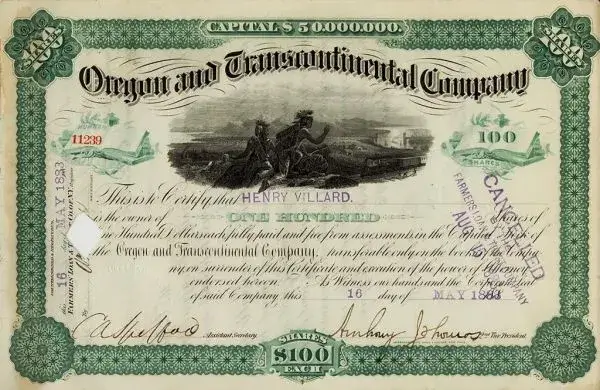 CAPITAL $50,000,000.
SHARES $100 EACH
SHARES $100 EACH
Oregon and Transcontinental Company
11239
100
SHARES
This is to Certify that HENRY VILLARD.
is the owner of ONE HUNDRED Shares of
One Hundred Dollars each, fully paid and free from assessments in the Capital Stock of
the Oregon and Transcontinental Company, transferable only on the books of the Company
on surrender of this Certificate and execution of the power of Attorney
endorsed hereon. As Witness our hands and the Corporate Seal
of said Company this 16 day of MAY 1883
Assistant Secretary
Anthony J. Thomas Vice President
SHARES
$100
EACH
16 day of MAY 1883
FARMERS LOAN AND TRUST COMPANY
CANCELLED
FARMERS LOAN
AUG 16
COMPANY